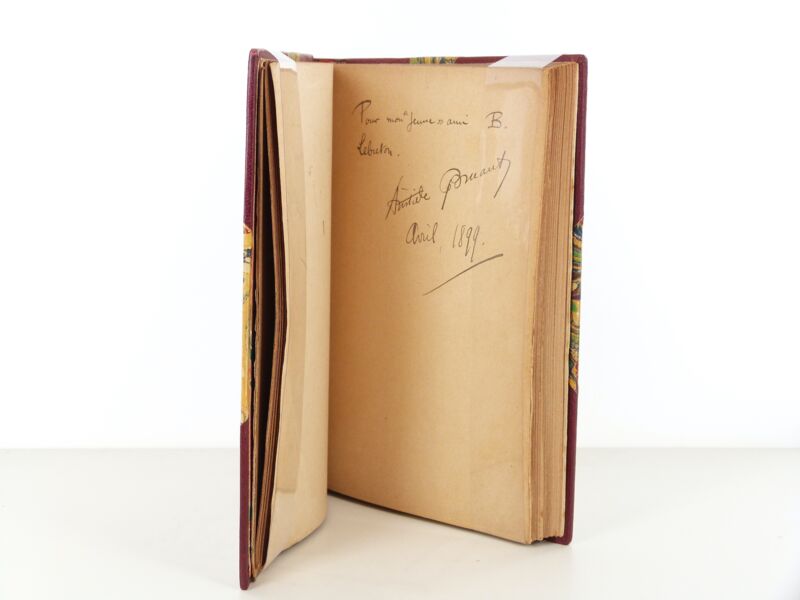 Pour mon "jeune" ami B.
Lebreton.
Aristide Bruant
Avril, 1899.